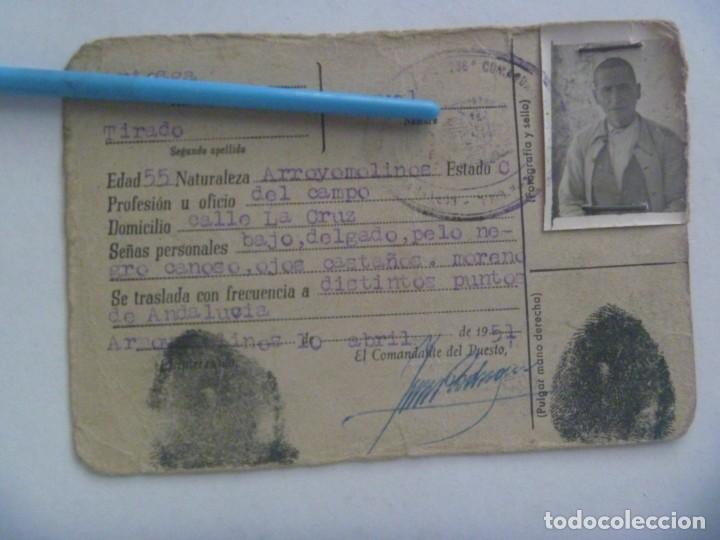 Tirado
Segundo apellido
Nombre
Edad 55 Naturaleza Arroyomolinos Estado C
Profesión u oficio del campo
Domicilio calle La Cruz
Señas personales bajo,delgado,pelo ne-
gro canoso,ojos castaños. moreno
Se traslada con frecuencia a distintos puntos
de Andalucia
10 abril de 1951
El Comandante del Puesto,
(Fotografía y sello)
(Pulgar mano derecha)
todocoleccion